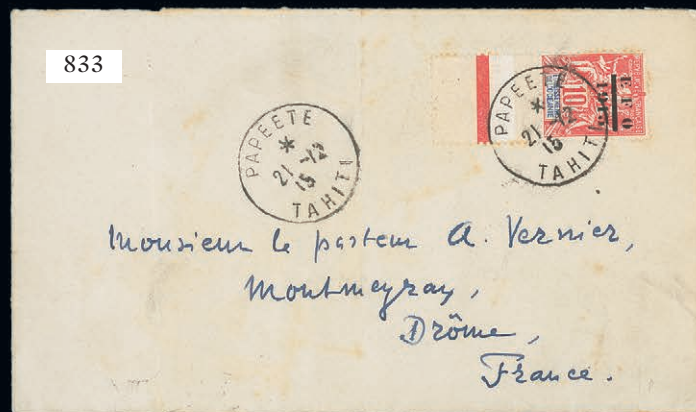 833
PAPEETE
*
21 -12
15
TAHITI
PAPEETE
*
21 -12
15
TAHITI
10
E F O
1915
Monsieur le pasteur A. Vernier,
Montmeyran,
Drôme,
France.